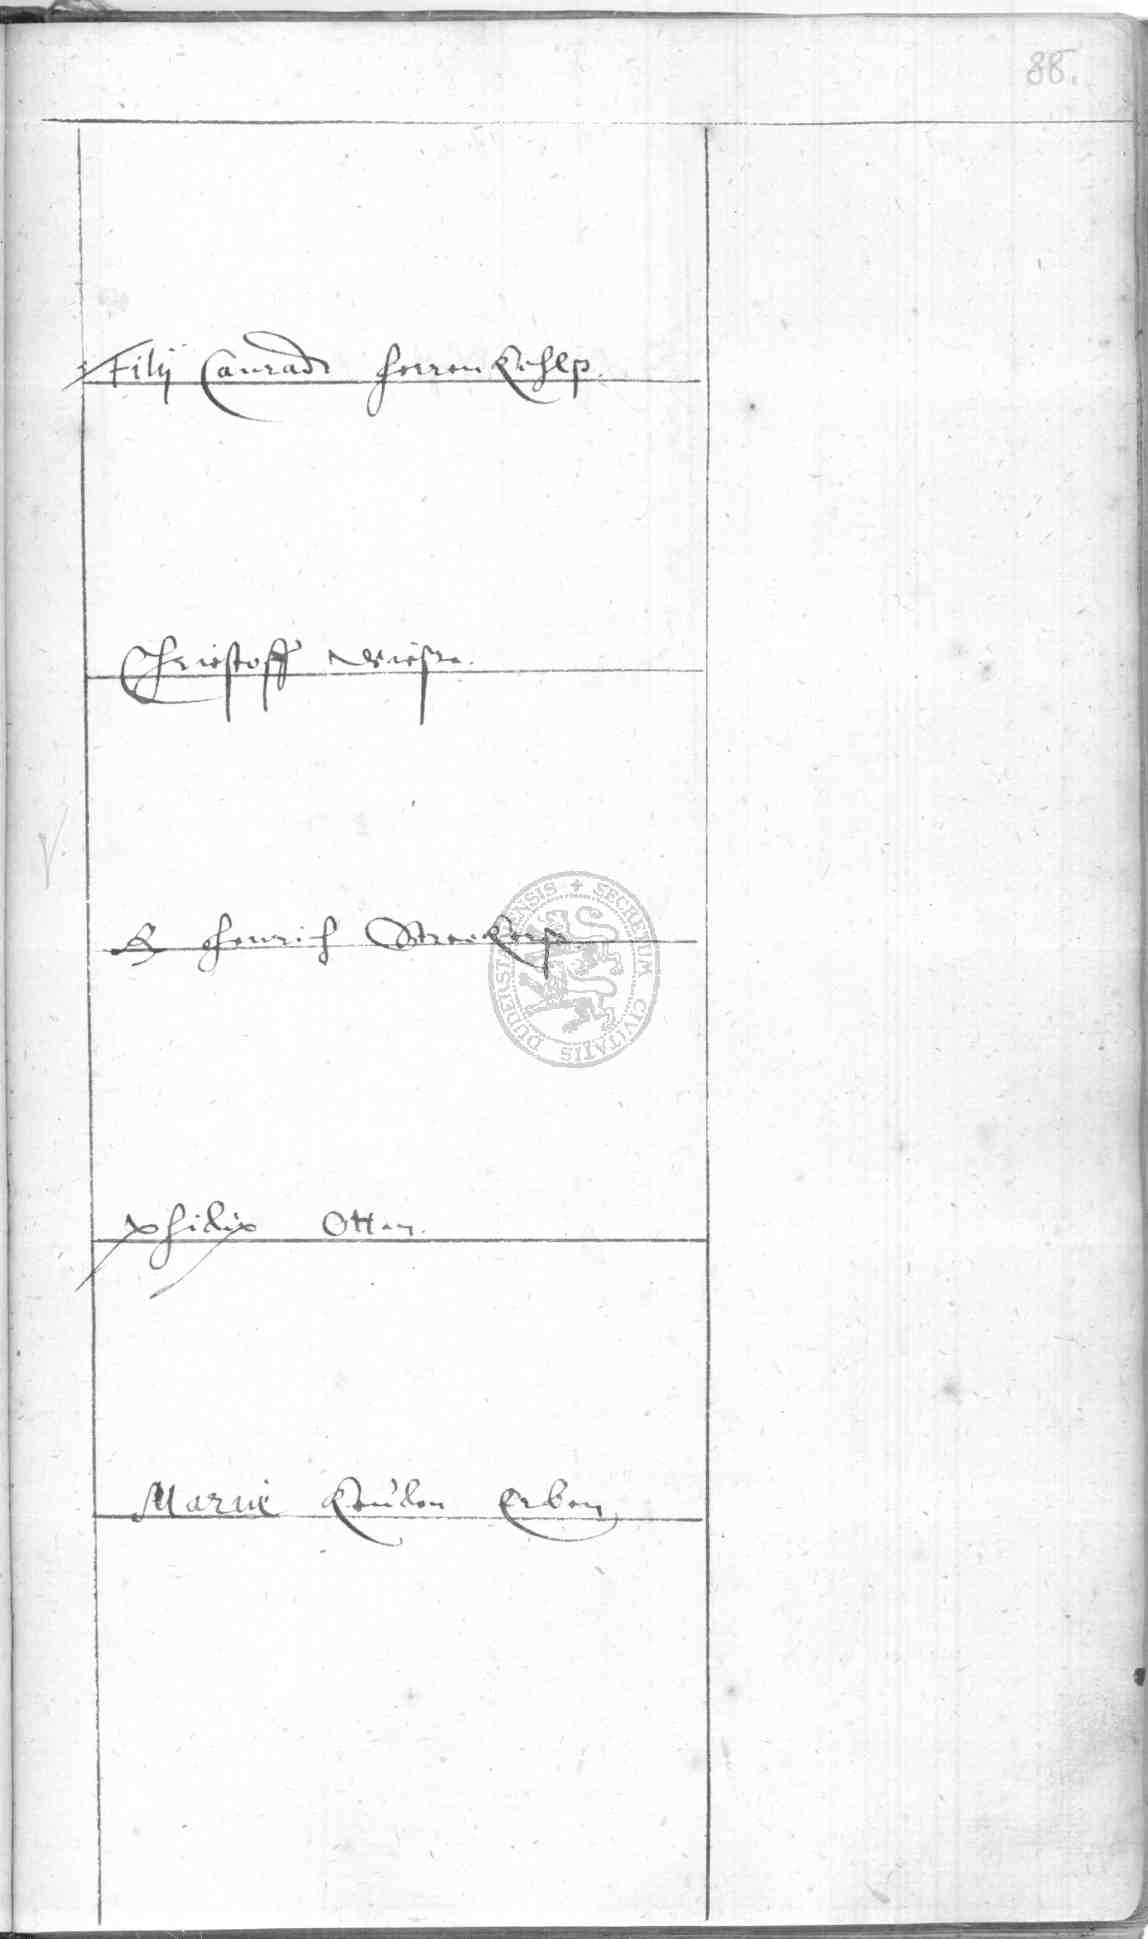 88.
Filij Conradt Herren Kehlß.
Christoff Wiese.
Henrich
Philip Otten.
Mariae Keulen Erben
SECRETUM CIVITATIS DUDERSTADENSIS